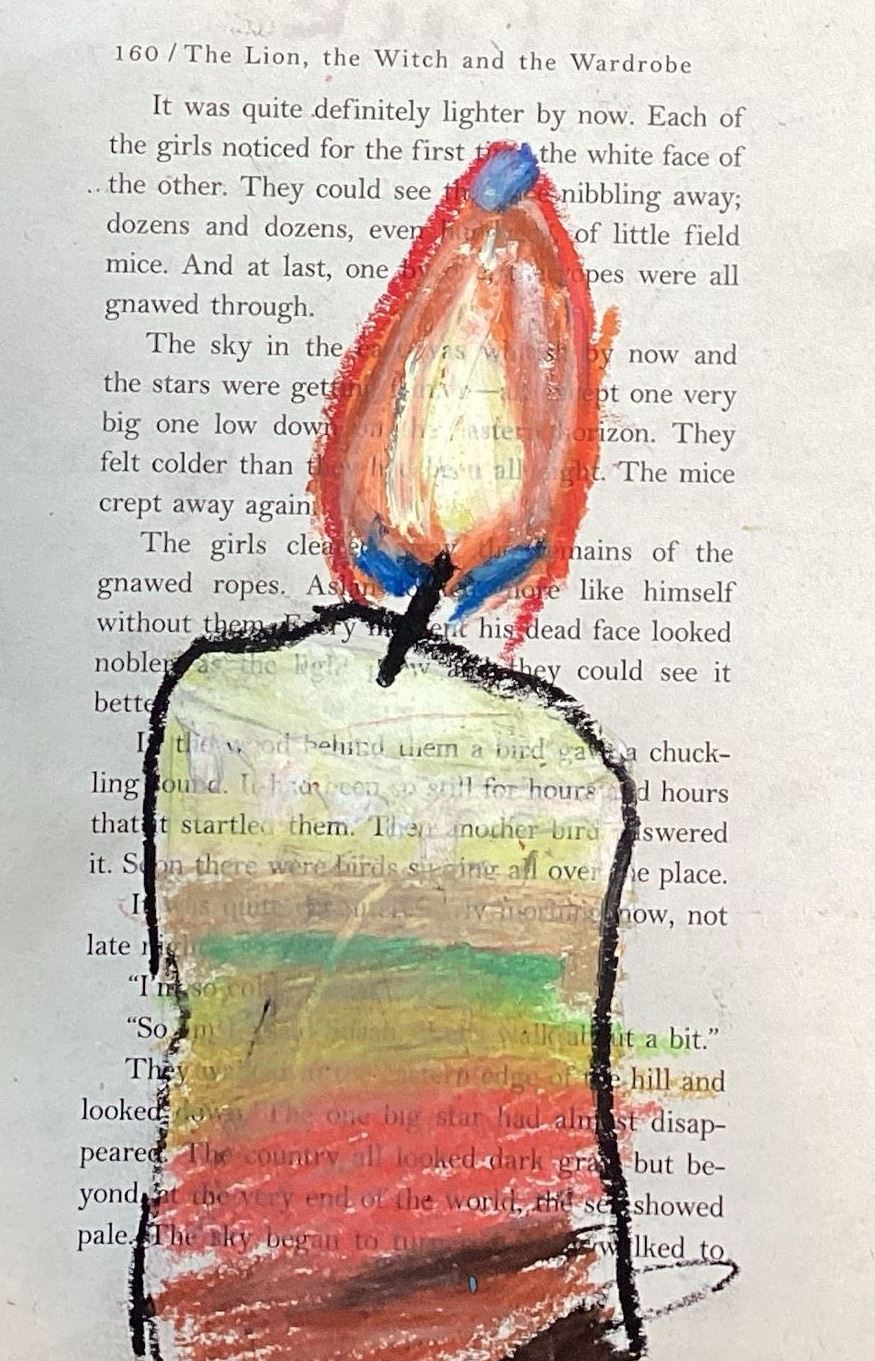 160 / The Lion, the Witch and the Wardrobe
It was quite definitely lighter by now. Each of
the girls noticed for the first the white face of
the other. They could see nibbling away;
dozens and dozens, even of little field
mice. And at last, one by ropes were all
gnawed through.
The sky in the was whitish by now and
the stars were getting except one very
big one low down on the eastern horizon. They
felt colder than they had been all night. The mice
crept away again.
The girls cleared away the remains of the
gnawed ropes. Aslan looked more like himself
without them. Every moment his dead face looked
nobler, as the light grew and they could see it
better.
In the wood behind them a bird gave a chuck-
ling sound. It had been so still for hours and hours
that it startled them. Then another bird answered
it. Soon there were birds singing all over the place.
It was quite definitely early morning now, not
late night.
"I'm so cold
"So am I," said walk about a bit."
They walked to the eastern edge of the hill and
looked down. The one big star had almost disap-
peared. The country all looked dark gray, but be-
yond, at the very end of the world, the sea showed
pale. The sky began to turn walked to